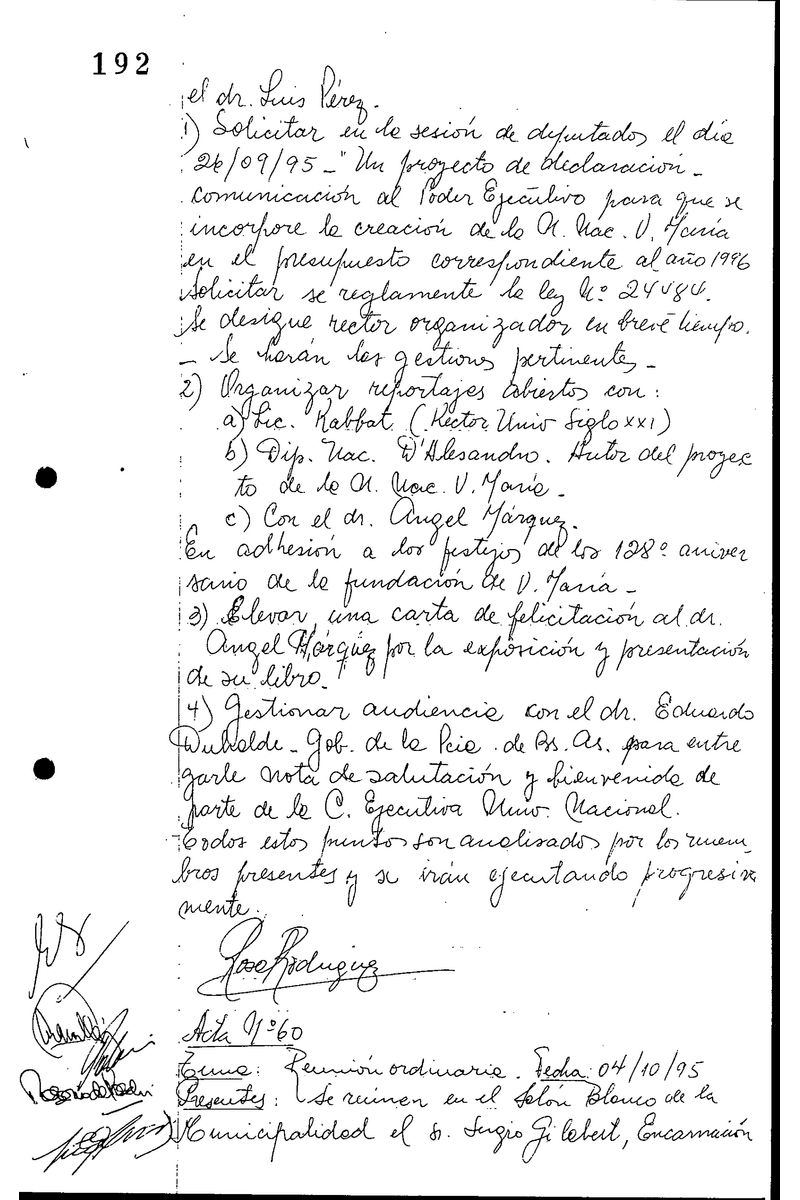 192
el dr. Luis Pérez.
1) Solicitar en la sesión de diputados el día
26/09/95 - "Un proyecto de declaración -
comunicación al Poder Ejecutivo para que se
incorpore la creación de la U. Nac. V. María
en el presupuesto correspondiente al año 1996
Solicitar se reglamente la ley Nº 24484.
Se designe rector organizador en breve tiempo.
- Se harán las gestiones pertinentes -
2) Organizar reportajes abiertos con:
a) Lic. Rabbat (Rector Univ Siglo XXI)
b) Dip. Nac. D'Alesandro. Autor del proyec
to de la U. Nac. V. María -
c) Con el dr. Angel Márquez.
En adhesión a los festejos de los 128º aniver
sario de la fundación de V. María -
3) Elevar una carta de felicitación al dr.
Angel Márquez por la exposición y presentación
de su libro.
4) Gestionar audiencia con el dr. Eduardo
Duhalde - Gob. de la Pcia. de Bs. As. para entre
garle nota de salutación y bienvenida de
parte de la C. Ejecutiva Univ. Nacional.
Todos estos puntos son analisados por los miem
bros presentes y se irán ejecutando progresiva
mente.
Rosa Rodriguez
Acta Nº 60
Tema: Reunión ordinaria. Fecha: 04/10/95
Presentes: Se reúnen en el Salón Blanco de la
Municipalidad el sr. Sergio Gilabert, Encarnación